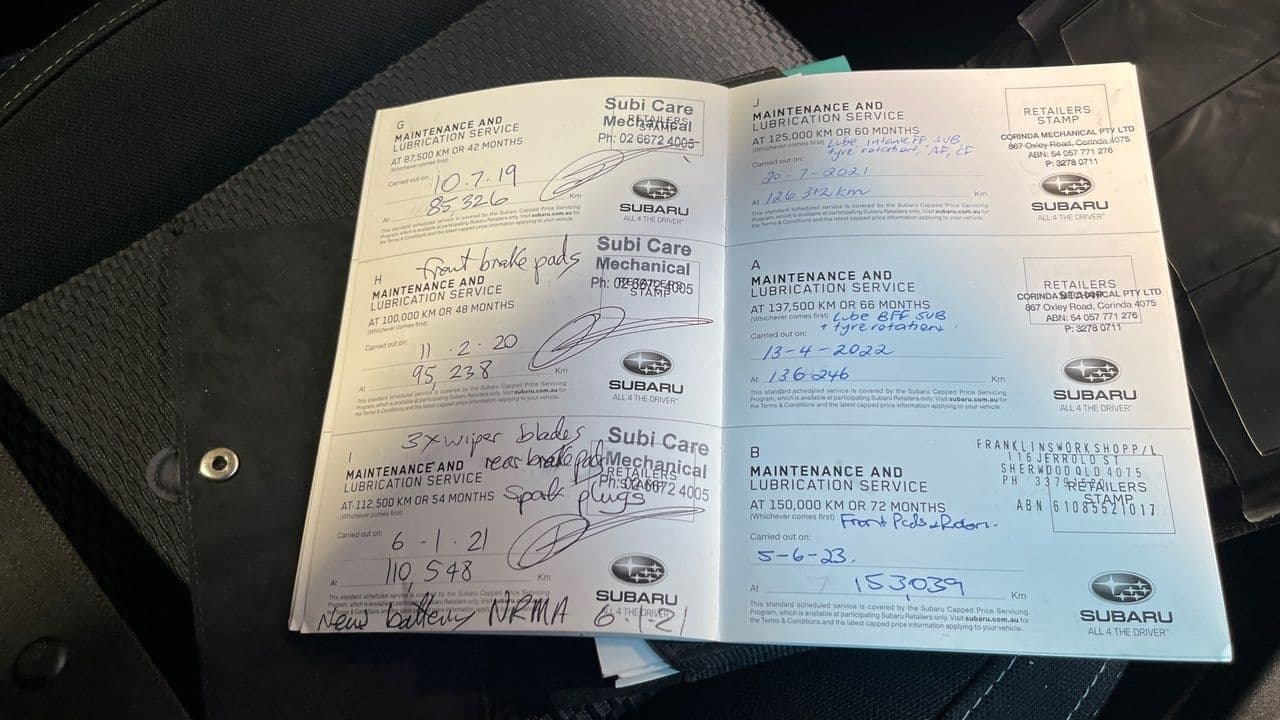 G
MAINTENANCE AND
LUBRICATION SERVICE
AT 87,500 KM OR 42 MONTHS
(Whichever comes first)
Carried out on: 10.7.19
At 85326 Km
This standard scheduled service is covered by the Subaru Capped Price Servicing
Program, which is available at participating Subaru Retailers only. Visit subaru.com.au for
the Terms & Conditions and the latest capped price information applying to your vehicle.
Subi Care
Mechanical
RETAILERS
STAMP
Ph: 02 6672 4005
SUBARU
ALL 4 THE DRIVER
front brake pads
H
MAINTENANCE AND
LUBRICATION SERVICE
AT 100,000 KM OR 48 MONTHS
(Whichever comes first)
Carried out on: 11.2.20
At 95,238 Km
This standard scheduled service is covered by the Subaru Capped Price Servicing
Program, which is available at participating Subaru Retailers only. Visit subaru.com.au for
the Terms & Conditions and the latest capped price information applying to your vehicle.
Subi Care
Mechanical
Ph: 02 6672 4005
RETAILERS
STAMP
SUBARU
ALL 4 THE DRIVER
3x wiper blades
rear brake pads
spark plugs
I
MAINTENANCE AND
LUBRICATION SERVICE
AT 112,500 KM OR 54 MONTHS
(Whichever comes first)
Carried out on: 6-1.21
At 110,548 Km
This standard scheduled service is covered by the Subaru Capped Price Servicing
Program, which is available at participating Subaru Retailers only. Visit subaru.com.au for
the Terms & Conditions and the latest capped price information applying to your vehicle.
New battery NRMA 6.1.21
Subi Care
Mechanical
RETAILERS
STAMP
Ph: 02 6672 4005
SUBARU
ALL 4 THE DRIVER
J
MAINTENANCE AND
LUBRICATION SERVICE
AT 125,000 KM OR 60 MONTHS
(Whichever comes first) Lube SUB
tyre rotation, AF, CF
Carried out on:
20-7-2021
At 126 312 km Km
This standard scheduled service is covered by the Subaru Capped Price Servicing
Program, which is available at participating Subaru Retailers only. Visit subaru.com.au for
the Terms & Conditions and the latest capped price information applying to your vehicle.
RETAILERS
STAMP
CORINDA MECHANICAL PTY LTD
867 Oxley Road, Corinda 4075
ABN: 54 057 771 276
P: 3278 0711
SUBARU
ALL 4 THE DRIVER
A
MAINTENANCE AND
LUBRICATION SERVICE
AT 137,500 KM OR 66 MONTHS
(Whichever comes first) Lube BFF SUB
+ tyre rotation
Carried out on:
13-4-2022
At 136246 Km
This standard scheduled service is covered by the Subaru Capped Price Servicing
Program, which is available at participating Subaru Retailers only. Visit subaru.com.au for
the Terms & Conditions and the latest capped price information applying to your vehicle.
RETAILERS
STAMP
CORINDA MECHANICAL PTY LTD
867 Oxley Road, Corinda 4075
ABN: 54 057 771 276
P: 3278 0711
SUBARU
ALL 4 THE DRIVER
B
MAINTENANCE AND
LUBRICATION SERVICE
AT 150,000 KM OR 72 MONTHS
(Whichever comes first) Front Pads + Rotors.
Carried out on:
5-6-23.
At 153,039 Km
This standard scheduled service is covered by the Subaru Capped Price Servicing
Program, which is available at participating Subaru Retailers only. Visit subaru.com.au for
the Terms & Conditions and the latest capped price information applying to your vehicle.
FRANKLINSWORKSHOPP/L
116JERROLD ST
SHERWOODQLD 4075
PH
RETAILERS
STAMP
ABN 61085521017
SUBARU
ALL 4 THE DRIVER